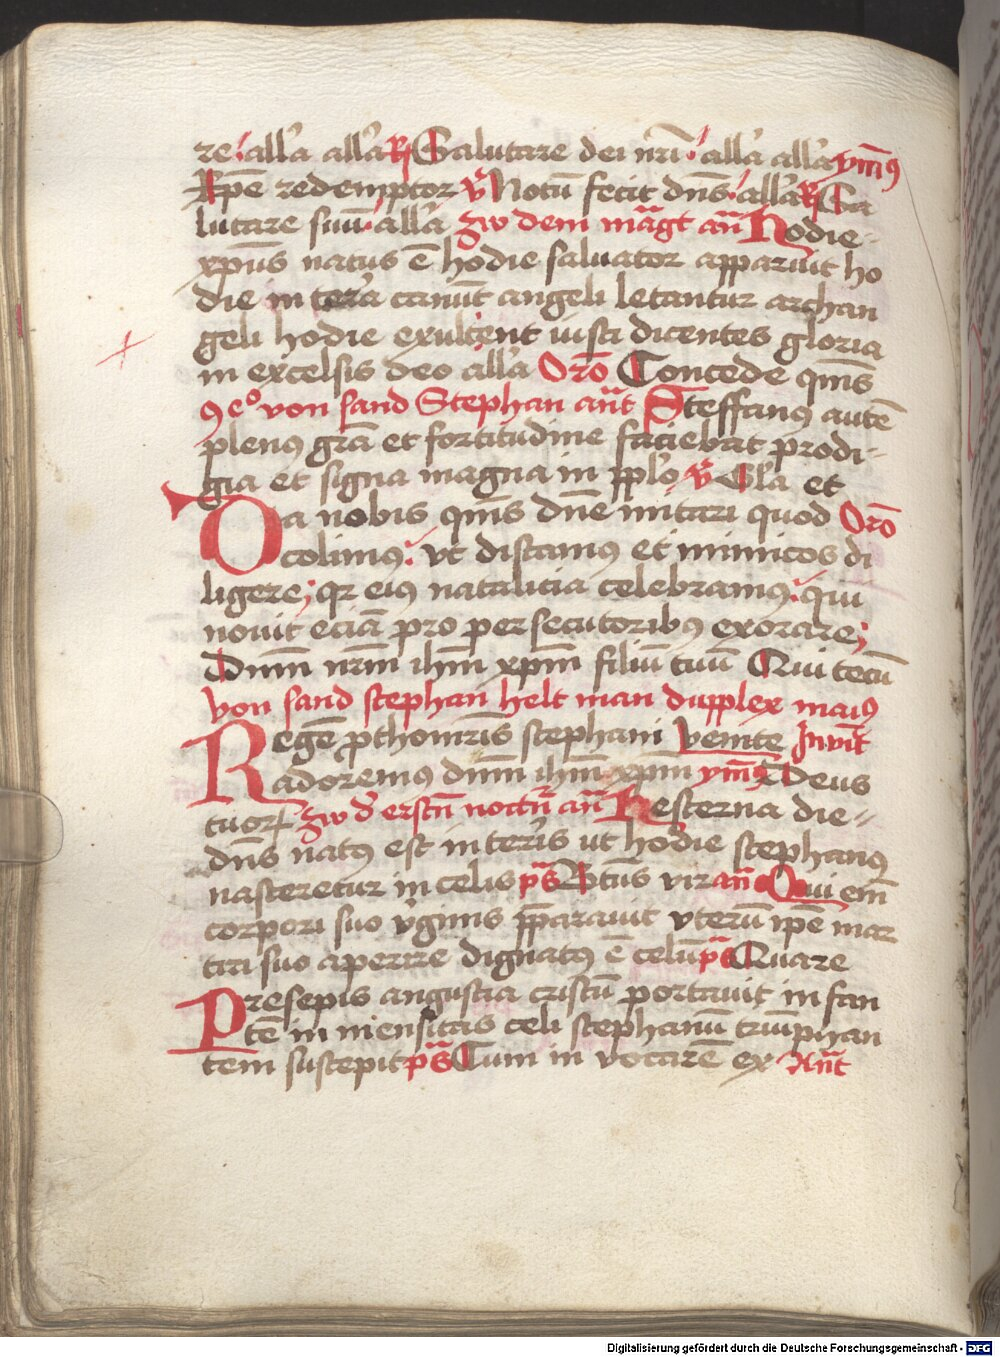 re · all'a all'a R Salutare dei nr̄i · all'a all'a ym̄9
Xp̄e redemptor V Notū fecit dn̄s · all'a R Sa
lutare suū · all'a Zw dem māgt an̄ Hodie
xp̄us natus ē hodie saluator apparuit ho
die in terra canūt angeli letantur archan
geli hodie exultent iusti dicentes gloria
in excelsis deo all'a Orō Concede qm̄s
9eo von sand Stephan an̄t Steffan9 autē
plen9 grā et fortitudine faciebat prodi
gia et signa magna in pplo V Gl'a et
Da nobis qm̄s dn̄e imitari quod Orō
colim9 · vt discam9 et inimicos di
ligere ; qr ei9 natalicia celebram9 · qui
nouit eciā pro persecutorib9 exorare ;
Dnm̄ nr̄m ihm̄ xpm̄ filiū tuū Qui tecū
von sand stephan helt man dupplex mai9
Regē pthom̄ris stephani venite Inuit̄
adorem9 dnm̄ ihm̄ xpm̄ ym̄9 Deus
tuor Zw d' erstn̄ noctn̄ an̄ Hesterna die
dn̄s nat9 est in terris ut hodie stephan9
nasceretur in celis ps̄ Btūs vir an̄ Qui em̄
corpori suo v'ginis p̄parauit vterū ip̄e mar
tiri suo aperire dignat9 ē celū ps̄ Quare
Presepis angustia cristū portauit infan
tē in mensitas celi stephanū triūphan
tem suscepit ps̄ Cum in vocarē ex An̄t
Digitalisierung gefördert durch die Deutsche Forschungsgemeinschaft - DFG